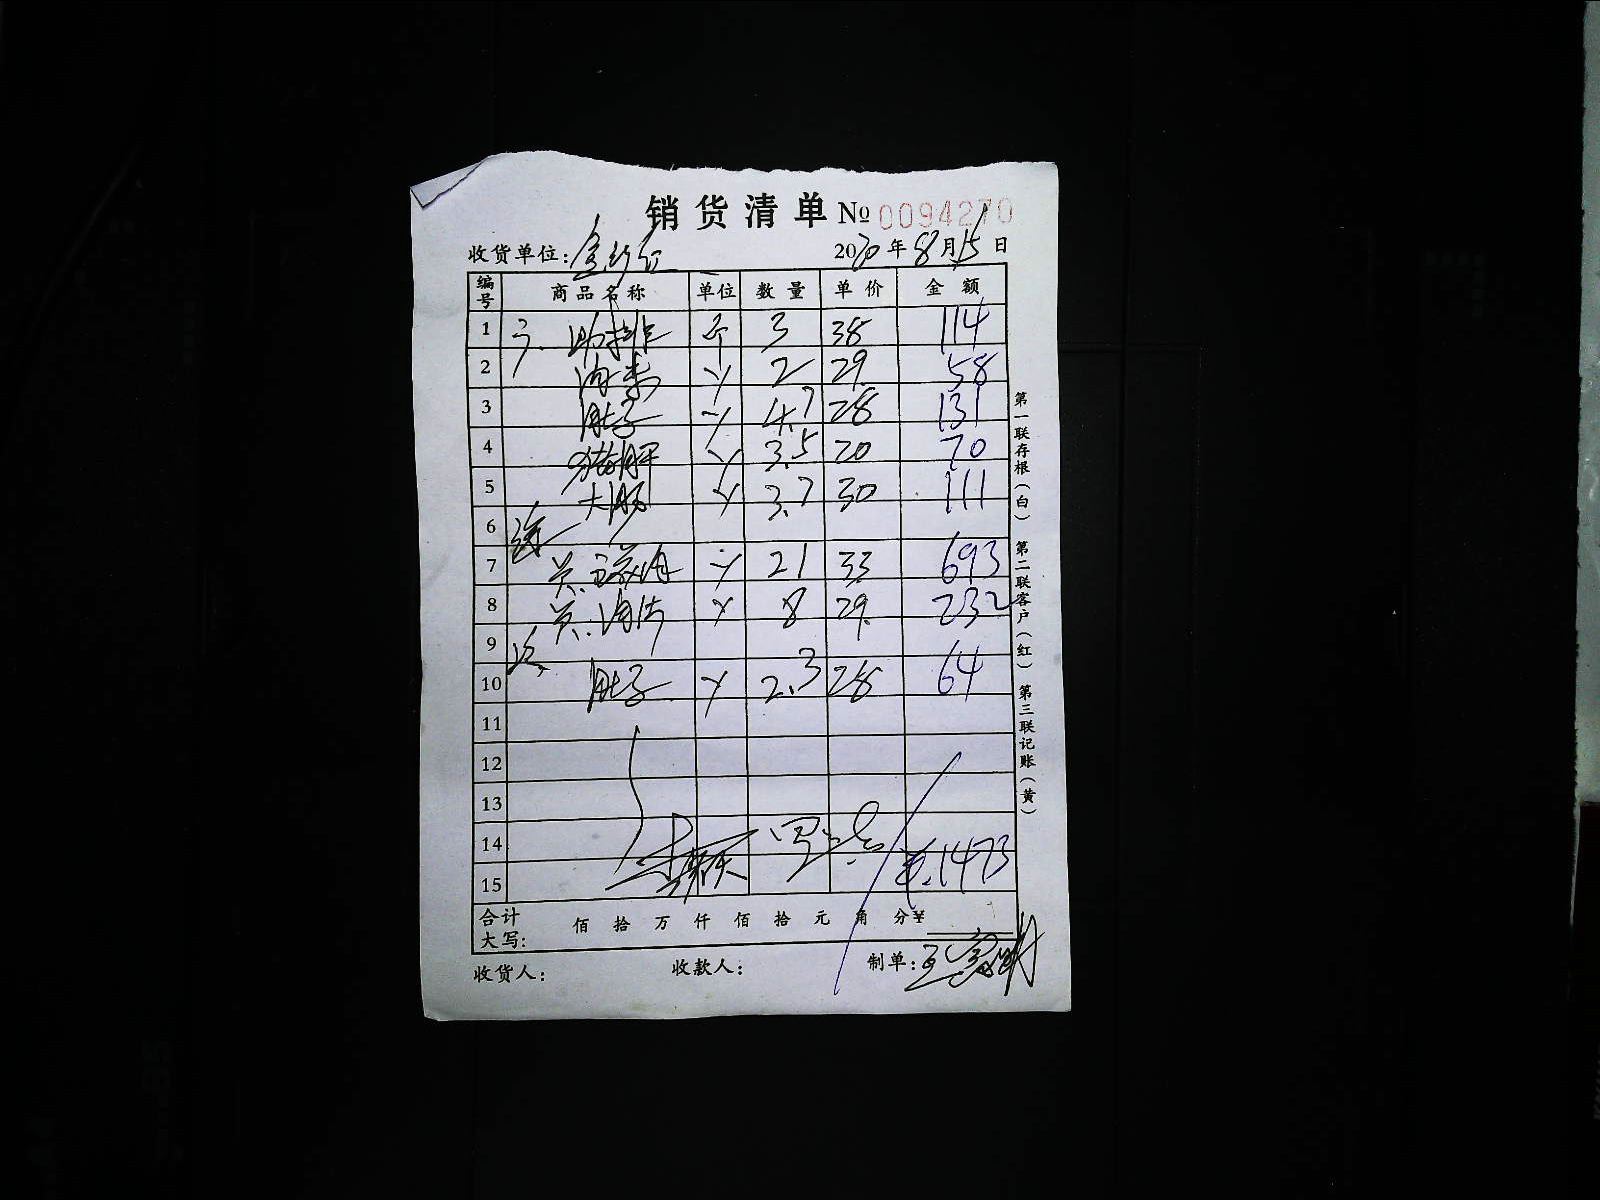 销货清单 № 0094270
收货单位: 2020年8月15日
编号 商品名称 单位 数量 单价 金额
1 肋排 个 3 38 114
2 2 29 58
3 肚子 4.7 28 131
4 猪肝 3.5 20 70
5 大肠 3.7 30 111
6
7 21 33 693
8 8 29 232
9
10 肚子 2.3 28 64
11
12
13
14
15 1473
合计大写: 佰 拾 万 仟 佰 拾 元 角 分 ¥
收货人: 收款人: 制单:
第一联存根(白) 第二联客户(红) 第三联记账(黄)